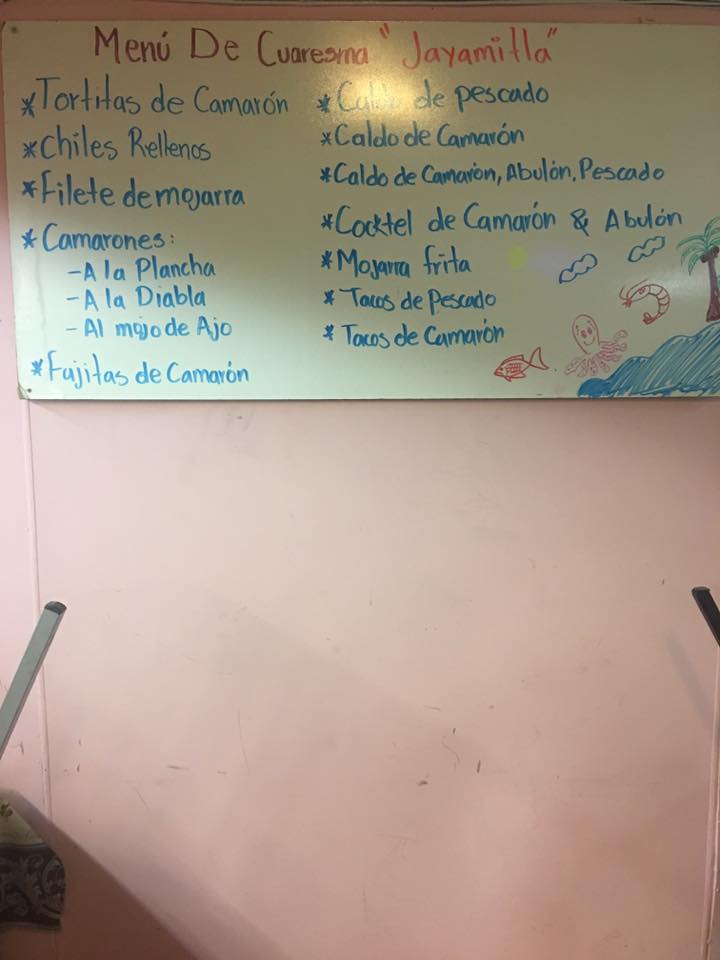 Menú De Cuaresma "Jayamitla"
*Tortitas de Camarón
*Chiles Rellenos
*Filete de mojarra
*Camarones:
-A la Plancha
-A la Diabla
-Al mojo de Ajo
*Fajitas de Camarón
*Caldo de pescado
*Caldo de Camarón
*Caldo de Camarón, Abulón, Pescado
*Cocktel de Camarón & Abulón
*Mojarra frita
*Tacos de Pescado
*Tacos de Camarón